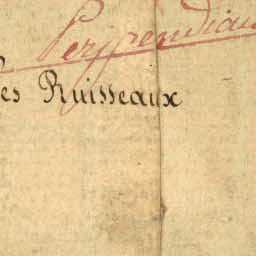 Perpendicu
es Ruisseaux